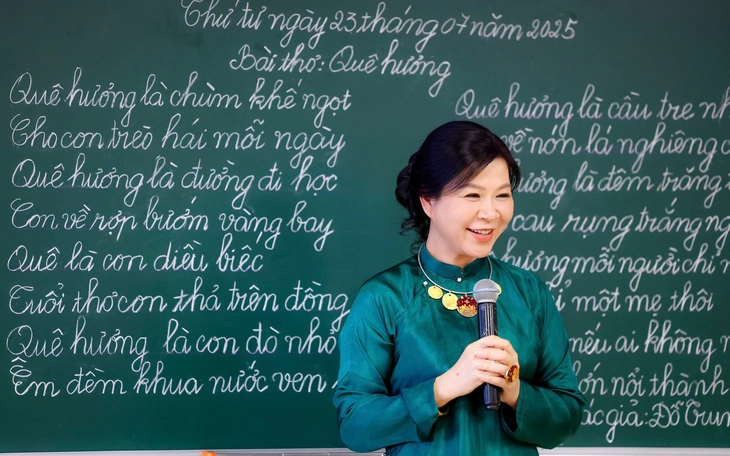 Thứ tư ngày 23 tháng 07 năm 2025
Bài thơ: Quê hương
Quê hương là chùm khế ngọt
Cho con trèo hái mỗi ngày
Quê hương là đường đi học
Con về rợp bướm vàng bay
Quê là con diều biếc
Tuổi thơ con thả trên đồng
Quê hương là con đò nhỏ
Êm đềm khua nước ven
Quê hương là cầu tre
về nón lá nghiêng
hương là đêm trăng
cau rụng trắng
hương mỗi người chỉ
một mẹ thôi
nếu ai không
lớn nổi thành
giả: Đỗ